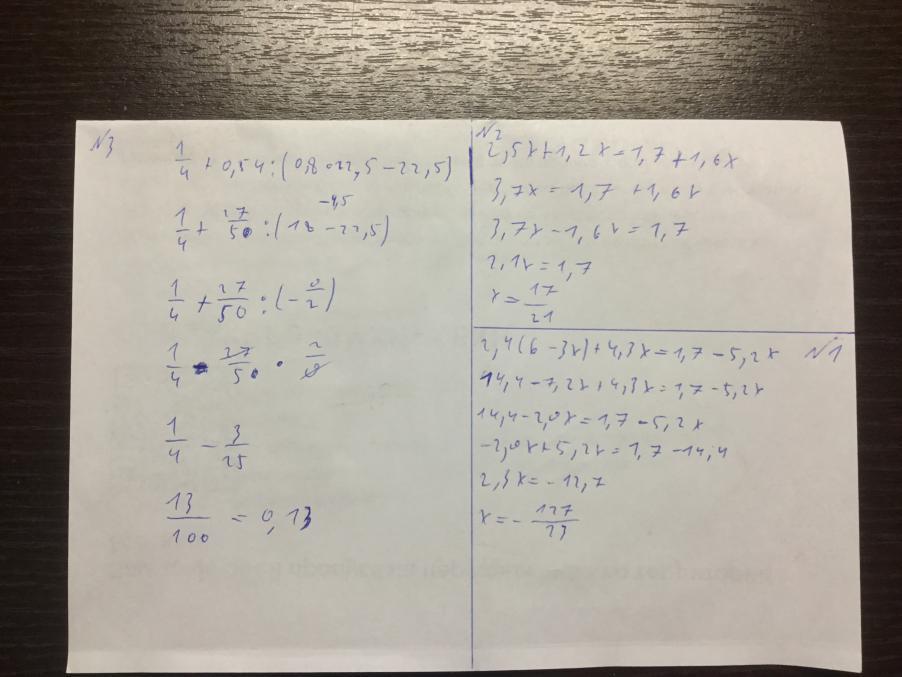 №3
1/4 + 0,54 : (0,8 · 22,5 - 22,5)
-4,5
1/4 + 27/50 : (18 - 22,5)
1/4 + 27/50 : (-9/2)
1/4 - 27/50 · 2/9
1/4 - 3/25
13/100 = 0,13
№2
2,5x+1,2x=1,7+1,6x
3,7x=1,7+1,6x
3,7x-1,6x=1,7
2,1x=1,7
x=17/21
2,4(6-3x)+4,3x=1,7-5,2x №1
14,4-7,2x+4,3x=1,7-5,2x
14,4-2,9x=1,7-5,2x
-2,9x+5,2x=1,7-14,4
2,3x=-12,7
x=-127/23